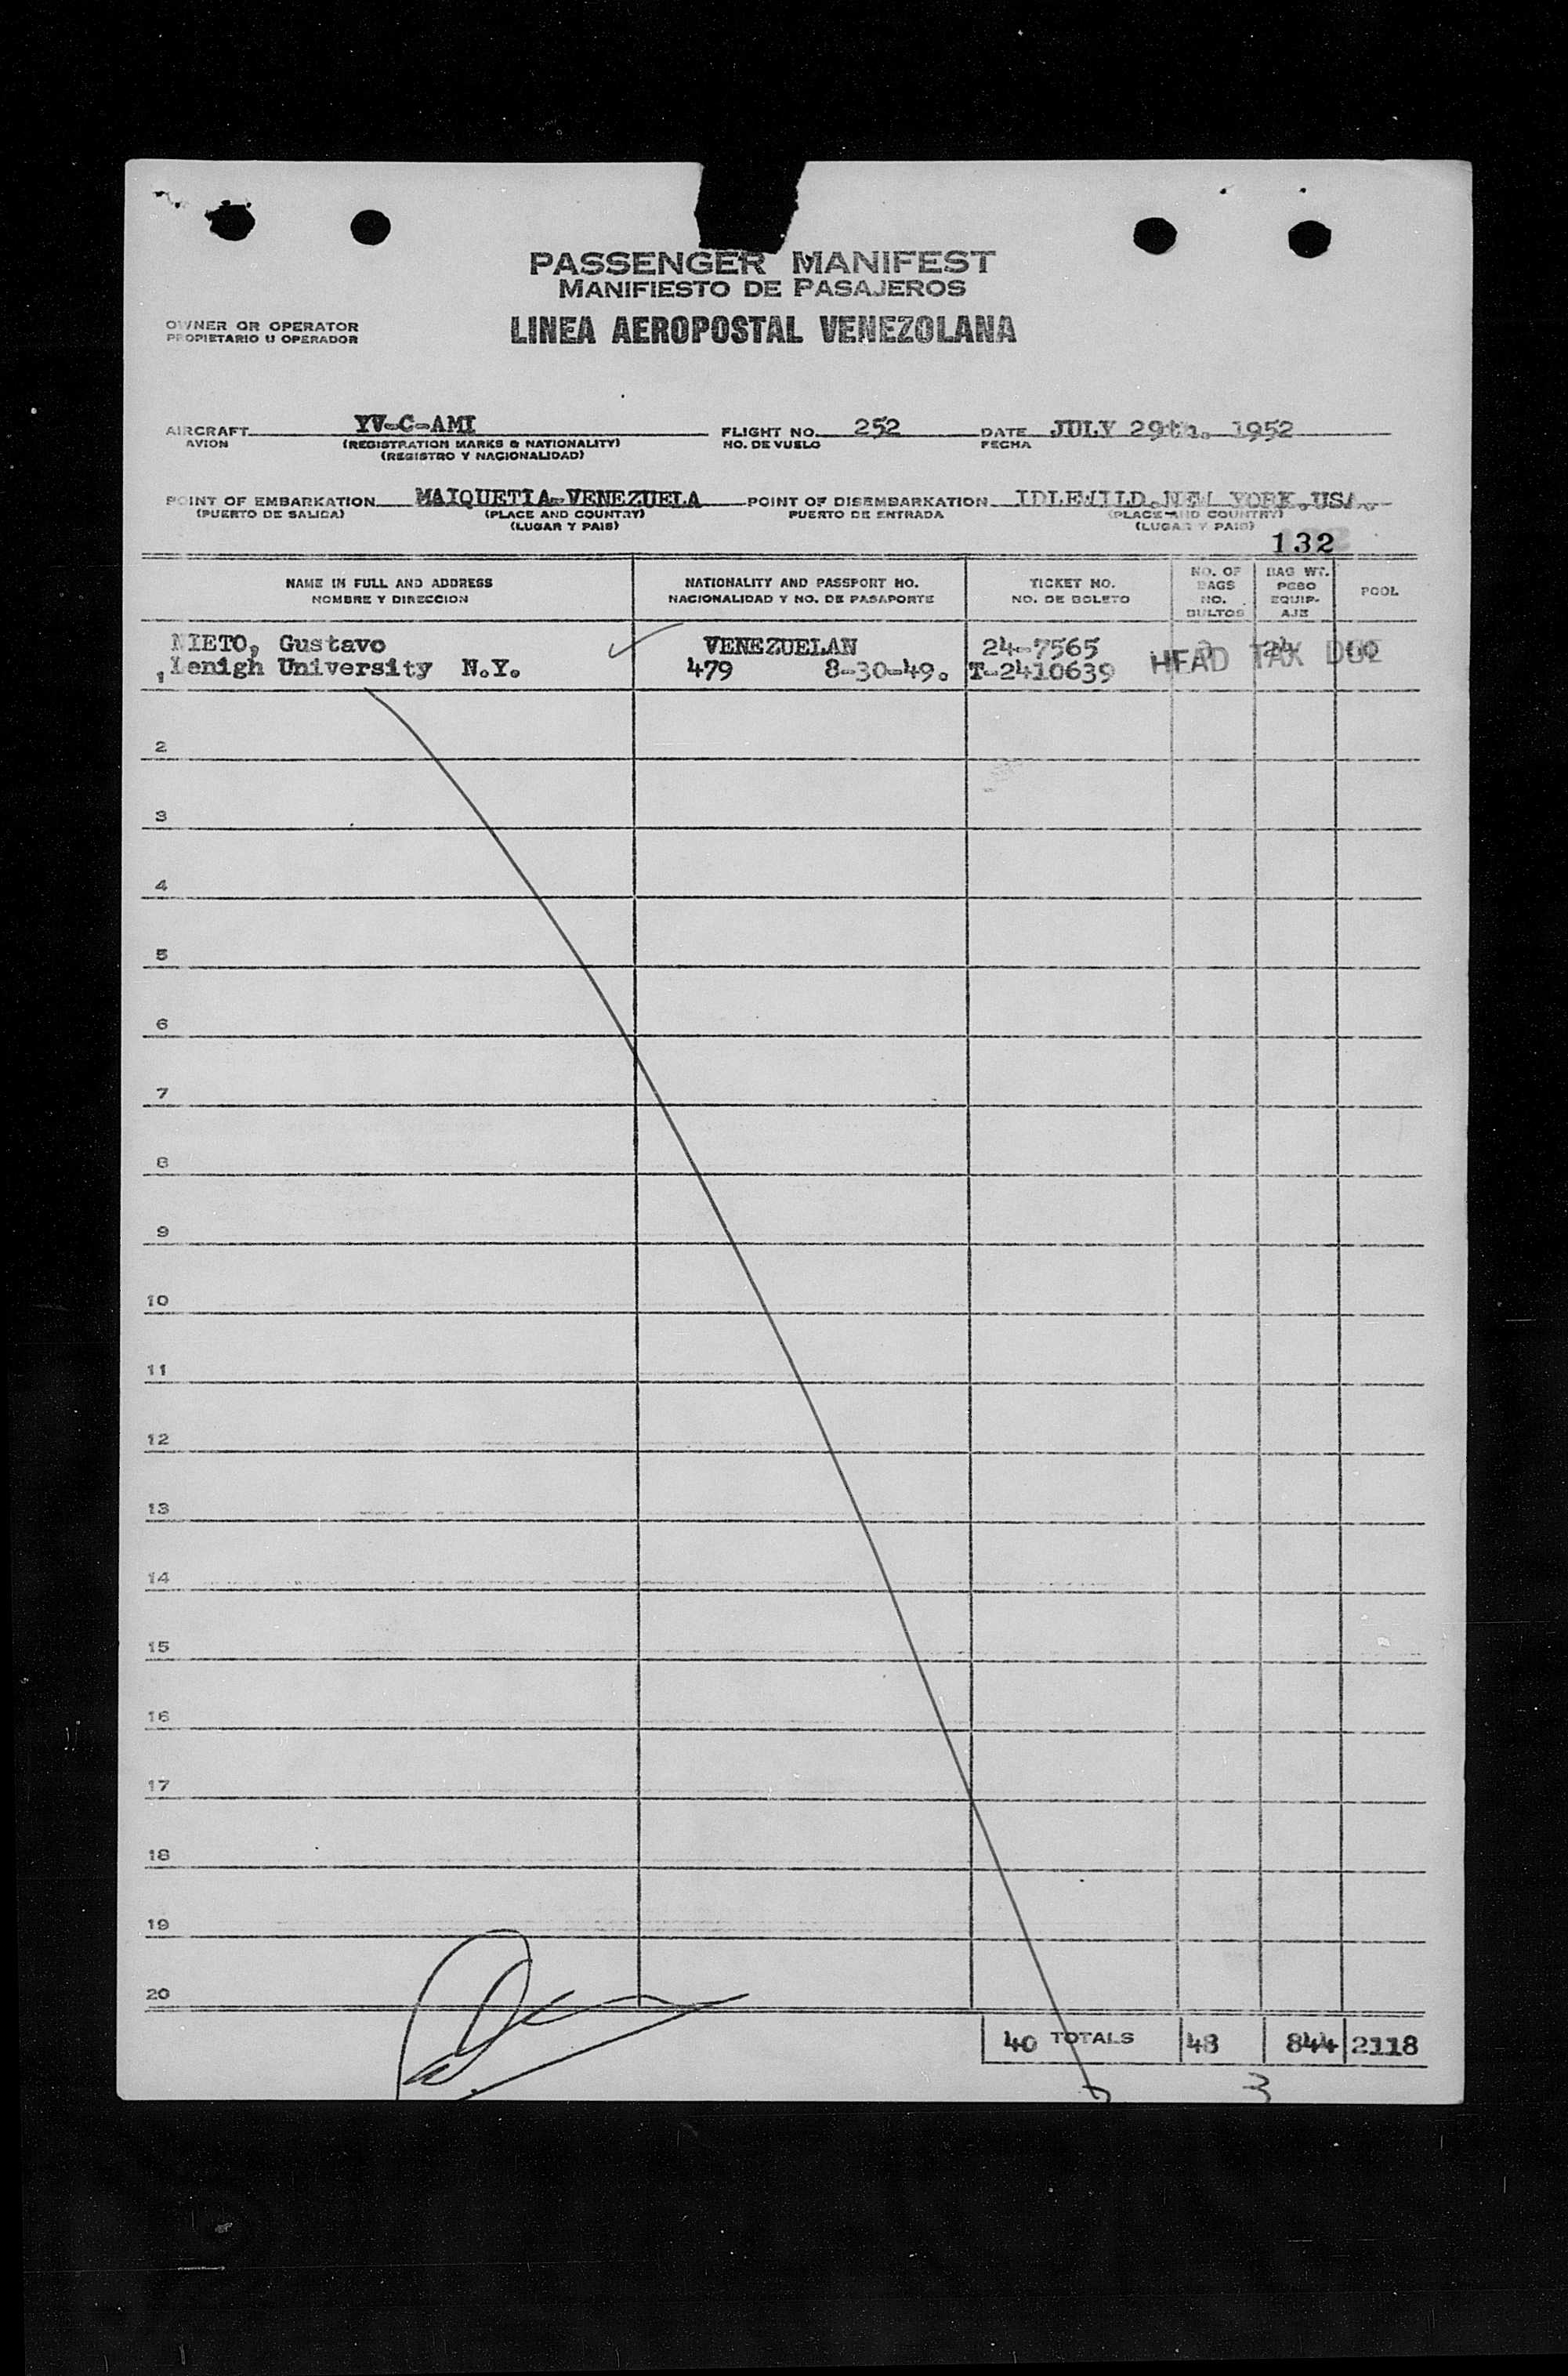 PASSENGER MANIFEST
MANIFIESTO DE PASAJEROS
OWNER OR OPERATOR
PROPIETARIO U OPERADOR
LINEA AEROPOSTAL VENEZOLANA
AIRCRAFT YV-C-AMI FLIGHT NO. 252 DATE JULY 29th. 1952
AVION (REGISTRATION MARKS & NATIONALITY) NO. DE VUELO FECHA
(REGISTRO Y NACIONALIDAD)
POINT OF EMBARKATION MAIQUETIA-VENEZUELA POINT OF DISEMBARKATION IDLEWILD.NEW YORK.USA.
(PUERTO DE SALIDA) (PLACE AND COUNTRY) PUERTO DE ENTRADA (PLACE AND COUNTRY)
(LUGAR Y PAIS) (LUGAR Y PAIS)
132
NAME IN FULL AND ADDRESS NATIONALITY AND PASSPORT NO. TICKET NO. NO. OF BAGS BAG WT. POOL
NOMBRE Y DIRECCION NACIONALIDAD Y NO. DE PASAPORTE NO. DE BOLETO NO. BULTOS PESO EQUIP-AJE
NIETO, Gustavo VENEZUELAN 24-7565 24
Lenigh University N.Y. 479 8-30-49. T-2410639 HEAD TAX DUE
2
3
4
5
6
7
8
9
10
11
12
13
14
15
16
17
18
19
20
40 TOTALS 48 844 2118
3